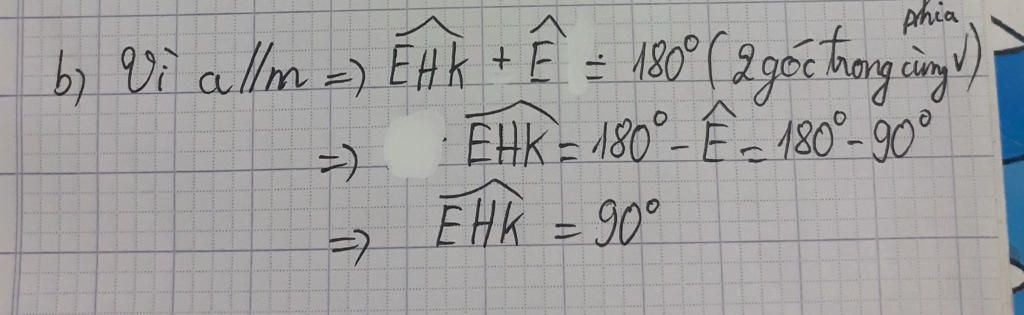 b) Vì a//m => \widehat{EHK} + \widehat{E} = 180° (2 góc trong cùng phía)
=> \widehat{EHK} = 180° - \widehat{E} = 180° - 90°
=> \widehat{EHK} = 90°